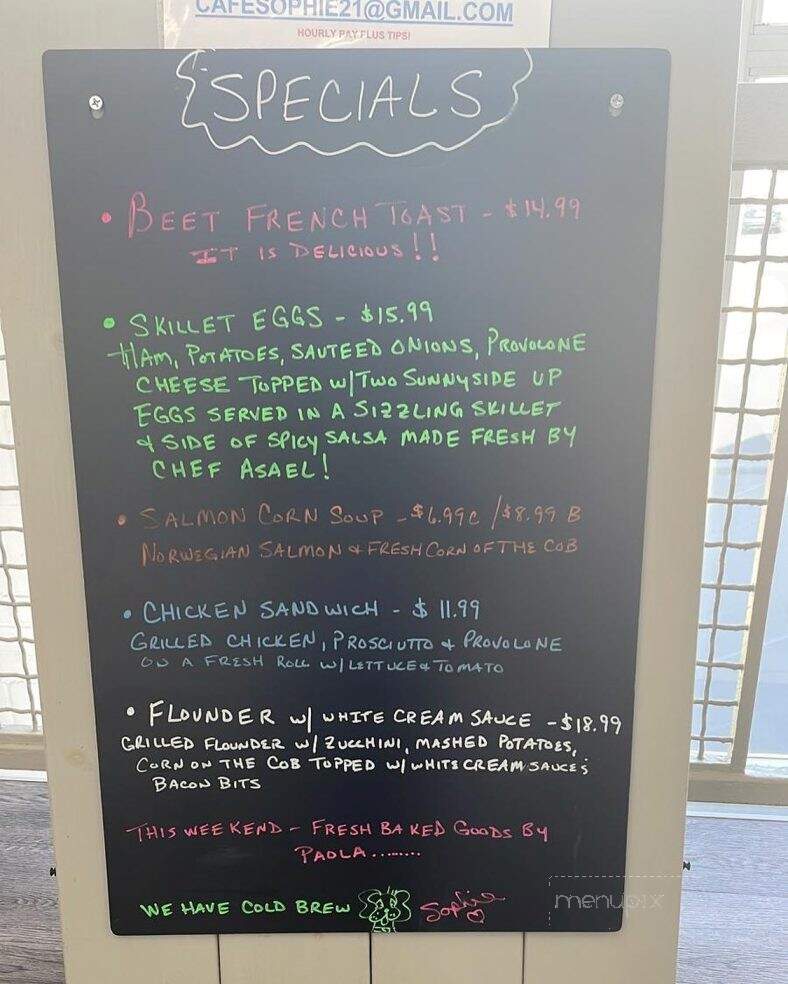 CAFESOPHIE21@GMAIL.COM
HOURLY PAY PLUS TIPS!
SPECIALS
• BEET FRENCH TOAST - $14.99
IT IS DELICIOUS!!
• SKILLET EGGS - $15.99
HAM, POTATOES, SAUTEED ONIONS, PROVOLONE
CHEESE TOPPED W/TWO SUNNYSIDE UP
EGGS SERVED IN A SIZZLING SKILLET
& SIDE OF SPICY SALSA MADE FRESH BY
CHEF ASAEL!
• SALMON CORN SOUP - $6.99C /$8.99 B
NORWEGIAN SALMON & FRESH CORN OF THE COB
• CHICKEN SANDWICH - $11.99
GRILLED CHICKEN, PROSCIUTTO & PROVOLONE
ON A FRESH ROLL W/LETTUCE & TOMATO
• FLOUNDER W/ WHITE CREAM SAUCE - $18.99
GRILLED FLOUNDER W/ ZUCCHINI, MASHED POTATOES,
CORN ON THE COB TOPPED W/ WHITE CREAM SAUCE &
BACON BITS
THIS WEEKEND - FRESH BAKED GOODS BY
PAOLA........
WE HAVE COLD BREW Sophie
menubix